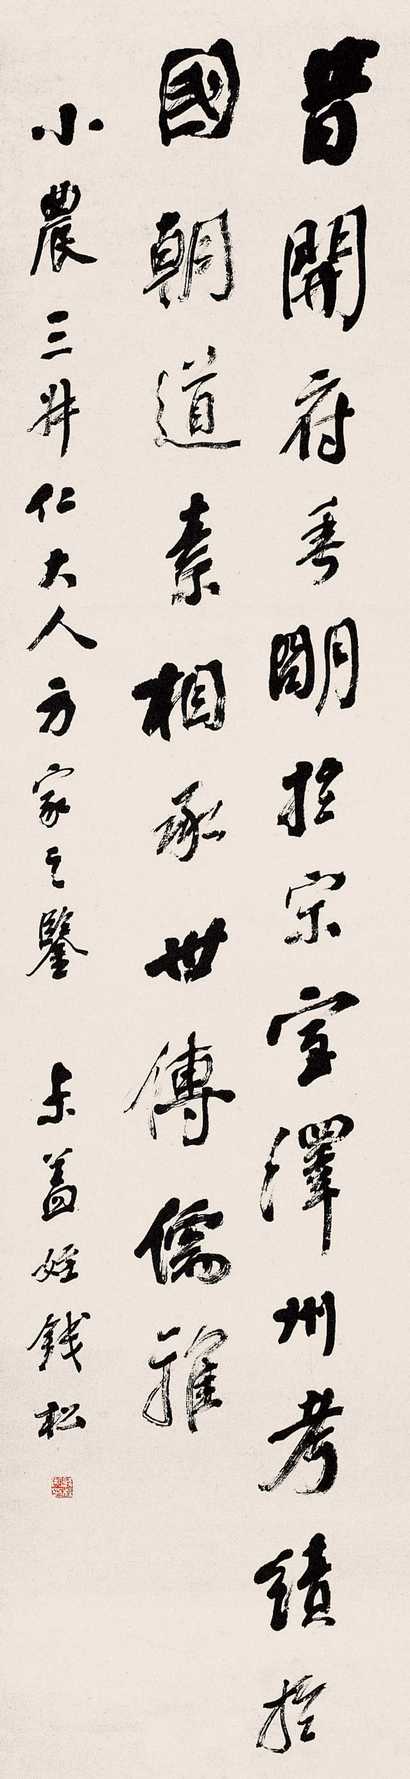 昔開府垂明於宋室澤州考績於
國朝道素相承世傳儒雅
小農三井仁大人方家之鑒 未蓋姪錢松